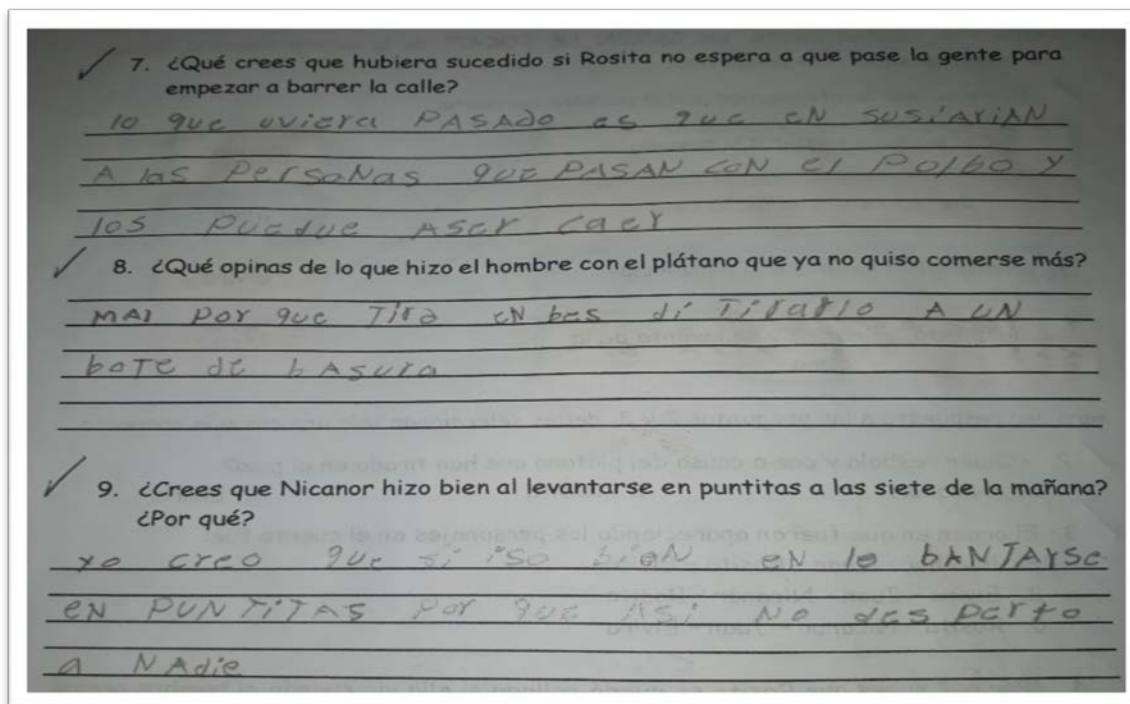 7. ¿Qué crees que hubiera sucedido si Rosita no espera a que pase la gente para
empezar a barrer la calle?
lo que uviera PASADO es que eN susiariAN
A las PersoNas que PASAN coN el Polbo y
los puedue Aser caer
8. ¿Qué opinas de lo que hizo el hombre con el plátano que ya no quiso comerse más?
MAl por que Tira eN bes di Tirarlo A uN
boTe de bAsura
9. ¿Crees que Nicanor hizo bien al levantarse en puntitas a las siete de la mañana?
¿Por qué?
yo creo que si iso bieN eN le bANTArse
eN PUNTiTAS por que ASi No des perto
a NAdie